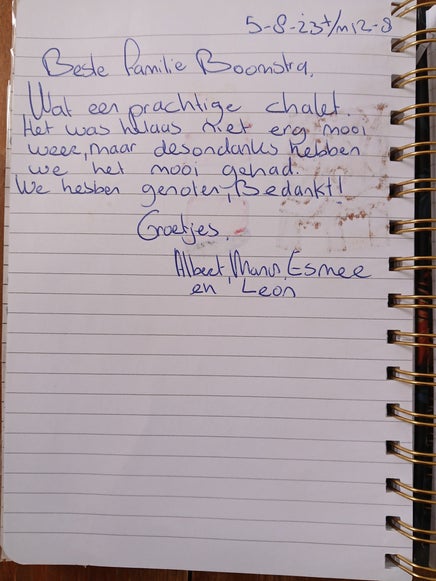 5-8-23 t/m 12-8
Beste familie Boomstra,
Wat een prachtige chalet.
Het was helaas niet erg mooi
weer, maar desondanks hebben
we het mooi gehad.
We hebben genoten, Bedankt!
Groetjes,
Albert, Manus, Esmee
en Leon